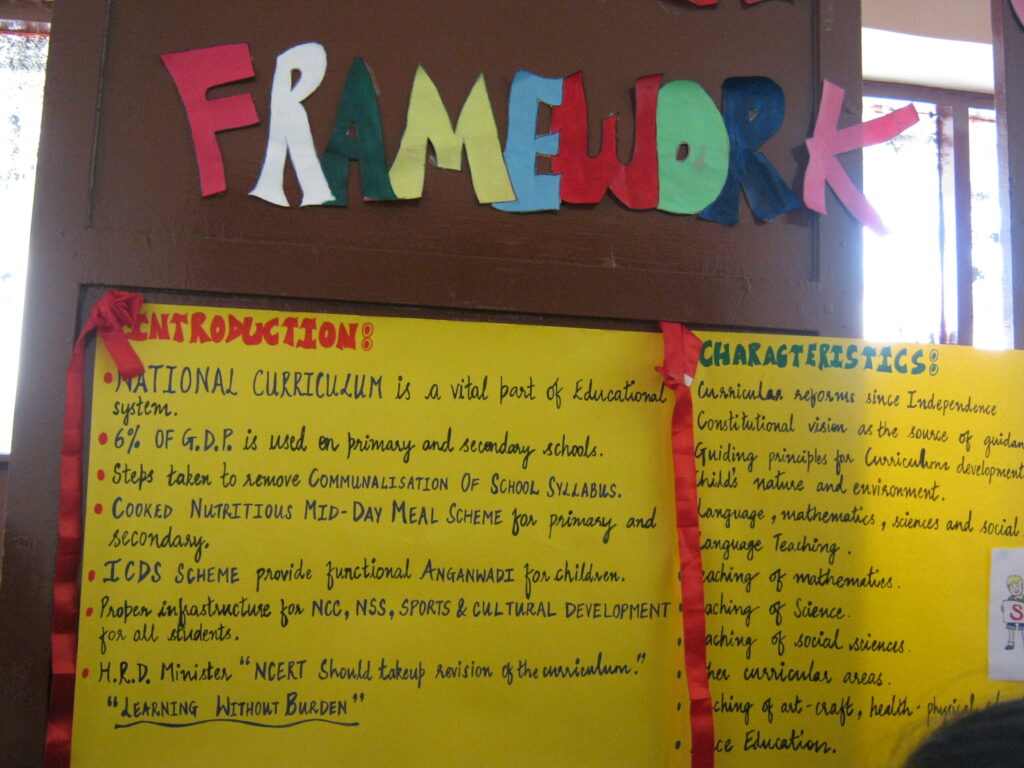 FRAMEWORK
INTRODUCTION:
• NATIONAL CURRICULUM is a vital part of Educational
system.
• 6% OF G.D.P. is used on primary and secondary schools.
• Steps taken to remove COMMUNALISATION OF SCHOOL SYLLABUS.
• COOKED NUTRITIOUS MID-DAY MEAL SCHEME for primary and
secondary.
• ICDS SCHEME provide functional ANGANWADI for children.
• Proper infrastructure for NCC, NSS, SPORTS & CULTURAL DEVELOPMENT
for all students.
• H.R.D. Minister "NCERT Should takeup revision of the curriculum."
"LEARNING WITHOUT BURDEN"
CHARACTERISTICS:
Curricular reforms since Independence.
Constitutional vision as the source of guidan
Guiding principles for Curriculum development
Child's nature and environment.
Language, mathematics, sciences and social
Language Teaching.
eaching of mathematics.
• aching of Science.
• aching of social sciences.
• her curricular areas.
• ching of art-craft, health-physical
• ce Education.
S